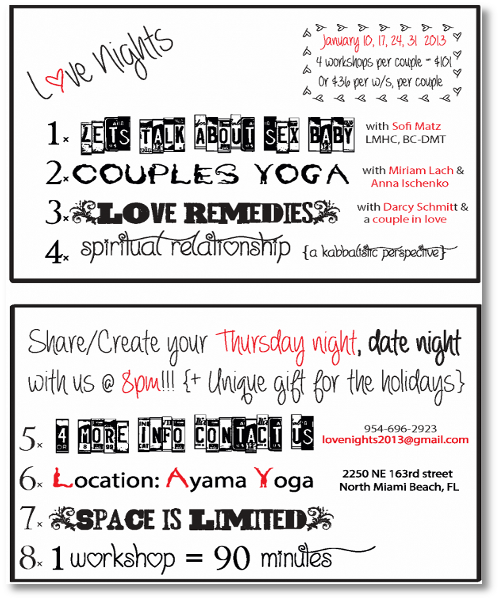 Love Nights
January 10, 17, 24, 31 2013
4 workshops per couple - $101
Or $36 per w/s, per couple
1x LETS TALK ABOUT SEX BABY with Sofi Matz
LMHC, BC-DMT
2x COUPLES YOGA with Miriam Lach &
Anna Ischenko
3x LOVE REMEDIES with Darcy Schmitt &
a couple in love
4x spiritual relationship {a kabbalistic perspective}
Share/Create your Thursday night, date night
with us @ 8pm!!! {+ Unique gift for the holidays}
5x 4 MORE INFO CONTACT US 954-696-2923
lovenights2013@gmail.com
6x Location: Ayama Yoga 2250 NE 163rd street
North Miami Beach, FL
7x SPACE IS LIMITED
8x 1 workshop = 90 minutes